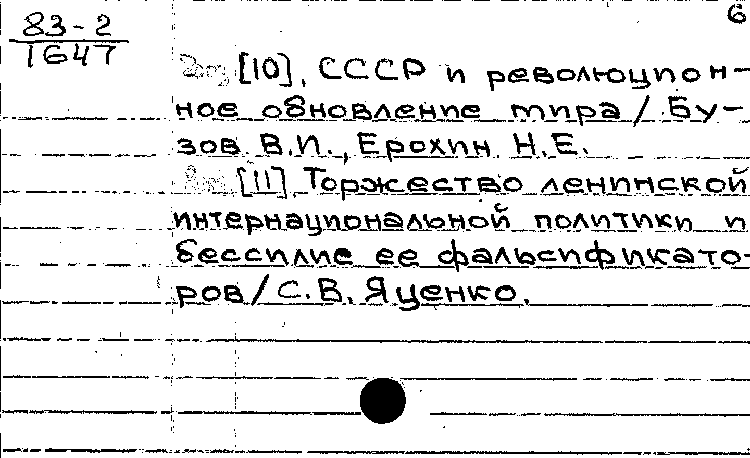 6
83-2
1647
[10]. СССР и революцион-
ное обновление мира / Бу-
зов В.И., Ерохин Н.Е.
[11] Торжество ленинской
интернациональной политики и
бессилие ее фальсификато-
ров / С.В. Яценко.